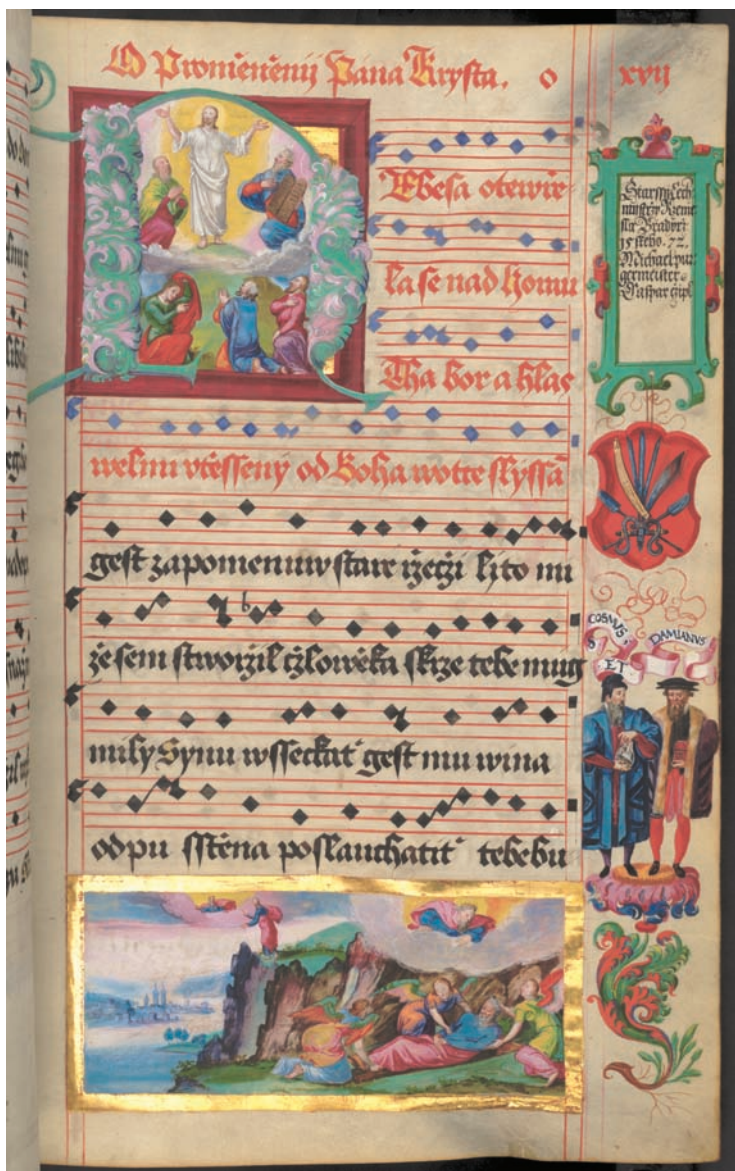 O Promienenij Pana Krysta. O xvij
Nebesa otewře-
la se nad horau
Tha bor a hlas
welmi vtiesseny od Boha wotce slyssā
gest zapomeniuw stare rzeczi lito mi
že sem stworzil czlowěka skrze tebe mug
mily Synu wsseckat' gest mu wina
odpu sstěna poslauchatit' tebe bu
Starssy Cech
mistrzy Rzeme
sla Bradyrz
15 steho. 72.
Michael pur
germeister.
Caspar
COSMVS
ET
DAMIANVS